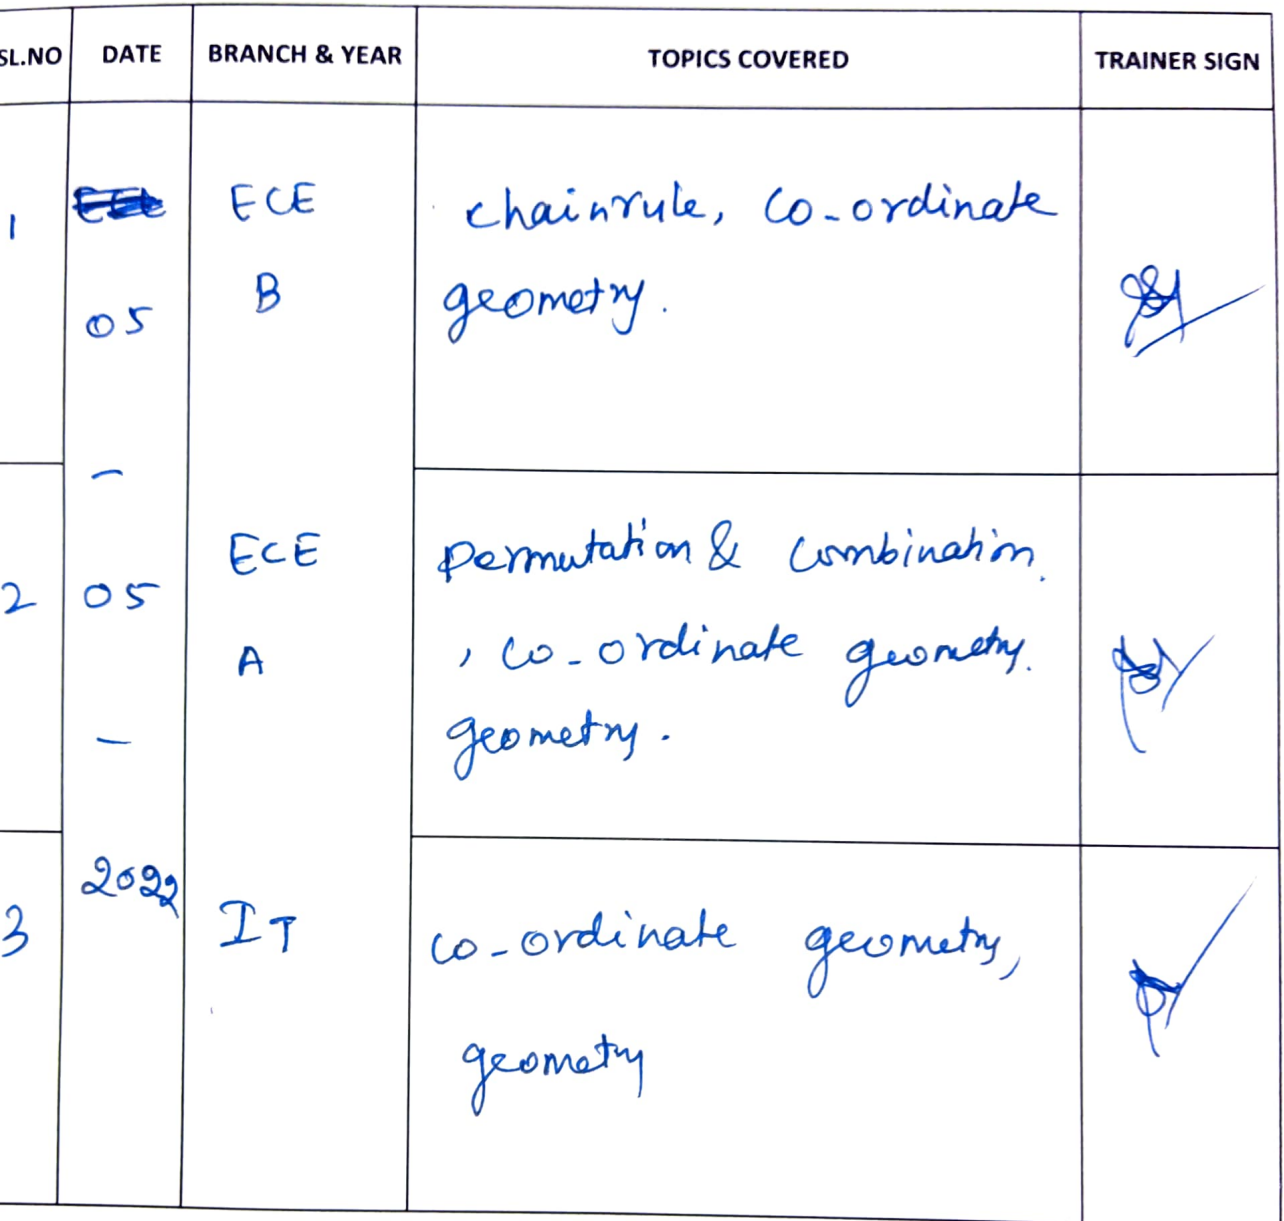 SL.NO DATE BRANCH & YEAR TOPICS COVERED TRAINER SIGN
1 ECE chainrule, co-ordinate
05 B geometry.
-
ECE Permutation & combination.
2 05
A , co-ordinate geometry.
- geometry.
2022
3 IT co-ordinate geometry,
geometry